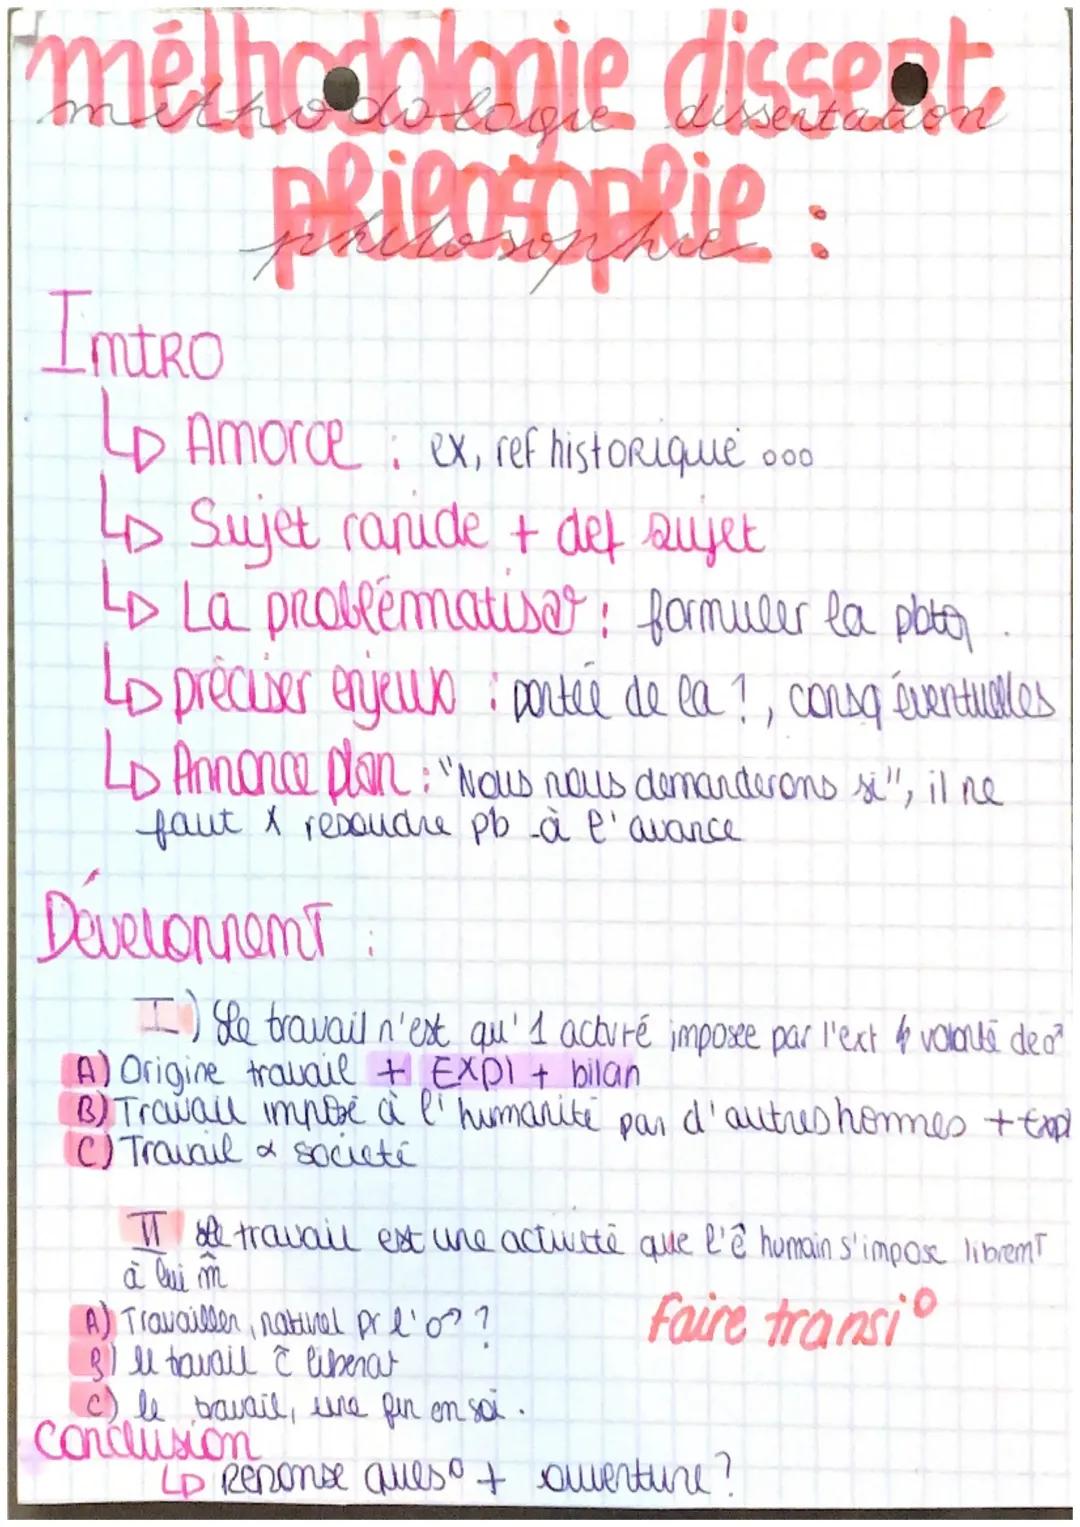 méthodologie dissert
méthodologie dissertation
philosophie :
philosophie
Intro
↳ Amorce : ex, ref historique ...
↳ Sujet rapide + def sujet
↳ La problématiser : formuler la pbtq .
↳ préciser enjeux : portée de la ?, consq éventuelles
↳ Annonce plan : "Nous nous demanderons si", il ne
faut X resoudre pb à l'avance
Développemt :
I) Le travail n'est qu'1 activité imposée par l'ext volonté de
A) Origine travail + EXPl + bilan
B) Travail imposé à l'humanité par d'autres hommes + Expl
C) Travail & société
II Le travail est une activité que l'ê humain s'impose libremt
à lui m̂
A) Travailler, naturel pr l'♂ ?
faire transi°
B) le travail c̄ liberat
C) le travail, une fin en soi .
Conclusion
↳ Reponse ques° + ouverture ?